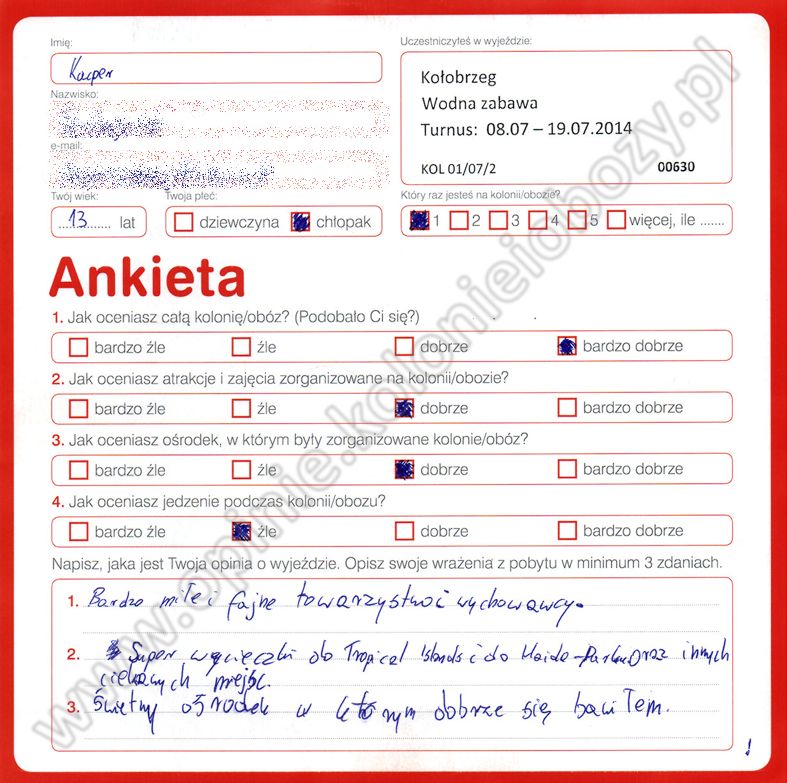 Imię:
Kacper
Nazwisko:
e-mail:
Twój wiek:
....13....... lat
Twoja płeć:
dziewczyna chłopak
Uczestniczyłeś w wyjeździe:
Kołobrzeg
Wodna zabawa
Turnus: 08.07 – 19.07.2014
KOL 01/07/2 00630
Który raz jesteś na kolonii/obozie?
1 2 3 4 5 więcej, ile .......
Ankieta
1. Jak oceniasz całą kolonię/obóz? (Podobało Ci się?)
bardzo źle źle dobrze bardzo dobrze
2. Jak oceniasz atrakcje i zajęcia zorganizowane na kolonii/obozie?
bardzo źle źle dobrze bardzo dobrze
3. Jak oceniasz ośrodek, w którym były zorganizowane kolonie/obóz?
bardzo źle źle dobrze bardzo dobrze
4. Jak oceniasz jedzenie podczas kolonii/obozu?
bardzo źle źle dobrze bardzo dobrze
Napisz, jaka jest Twoja opinia o wyjeździe. Opisz swoje wrażenia z pobytu w minimum 3 zdaniach.
1. Bardzo miłe i fajne towarzystwo i wychowawcy.
2. Super wycieczki do Tropical Islands i do Haide-Parku oraz innych
ciekawych miejsc.
3. Świetny ośrodek w którym dobrze się bawiłem.
!
www.opinie.kolonieiobozy.pl